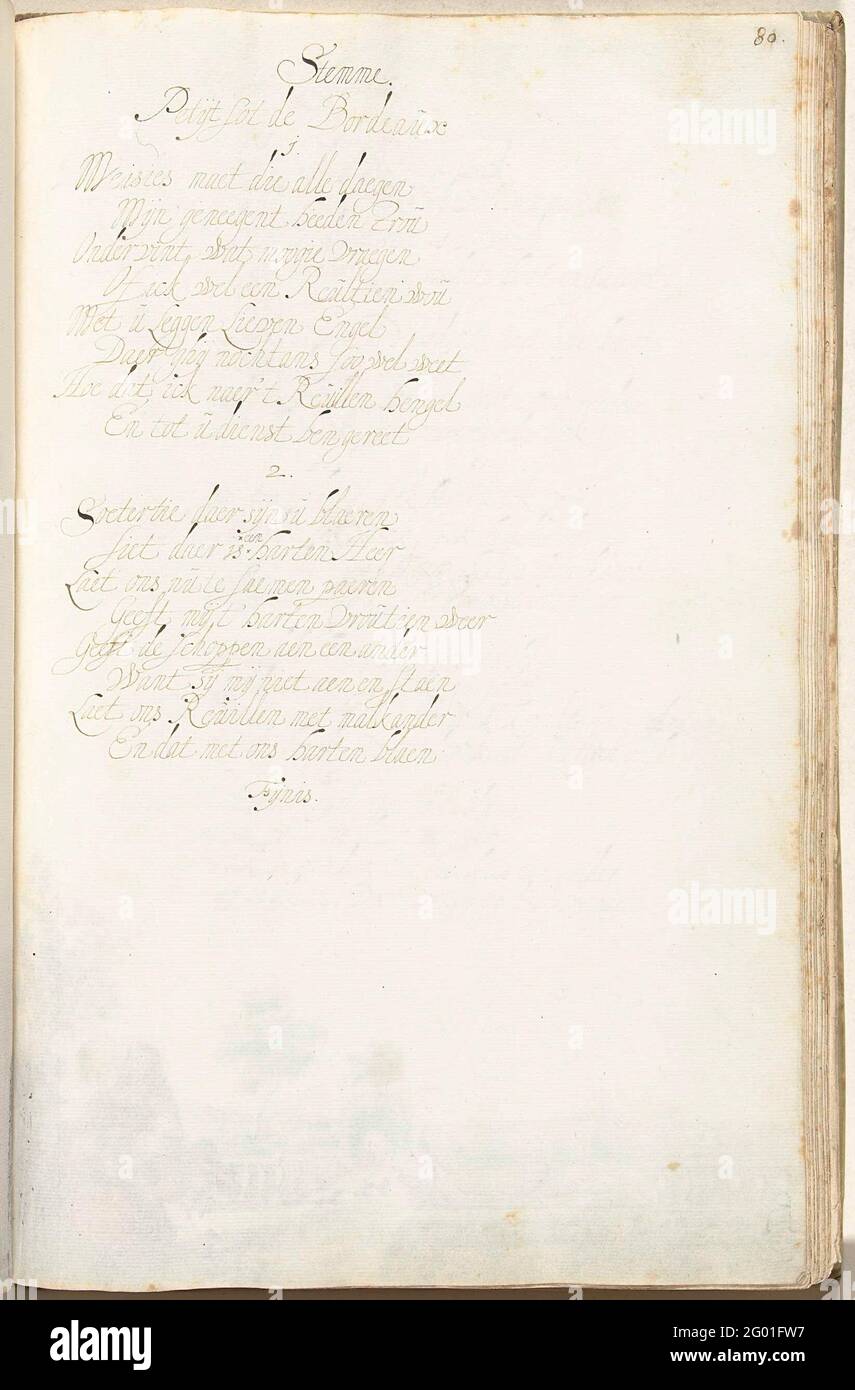 80.
Stemme.
Petijt sot de Bordeaux
1.
Meisies maet die alle daegen
Mijn geneegent heeden trou
Ondervint, wat moogie vraegen
Of ick wel een Reultien wou
Met u leggen lieven Engel
Daer ghij nochtans soo wel weet
Hoe dat ick naer 't Reuillen hengel
En tot u dienst ben gereet
2.
Soetertie daer sijn u blaeren
siet daer is een harten Heer
Laet ons nu te saemen paeren
Geeft mij t' harten vroutien weer
Geeft de schoppen aen een ander
Want sij mij niet aen en staen
Laet ons Reuillen met malkander
En dat met ons harten blaen
Fijnis.
alamy
alamy
alamy
alamy
Image ID: 2G01FW7
www.alamy.com